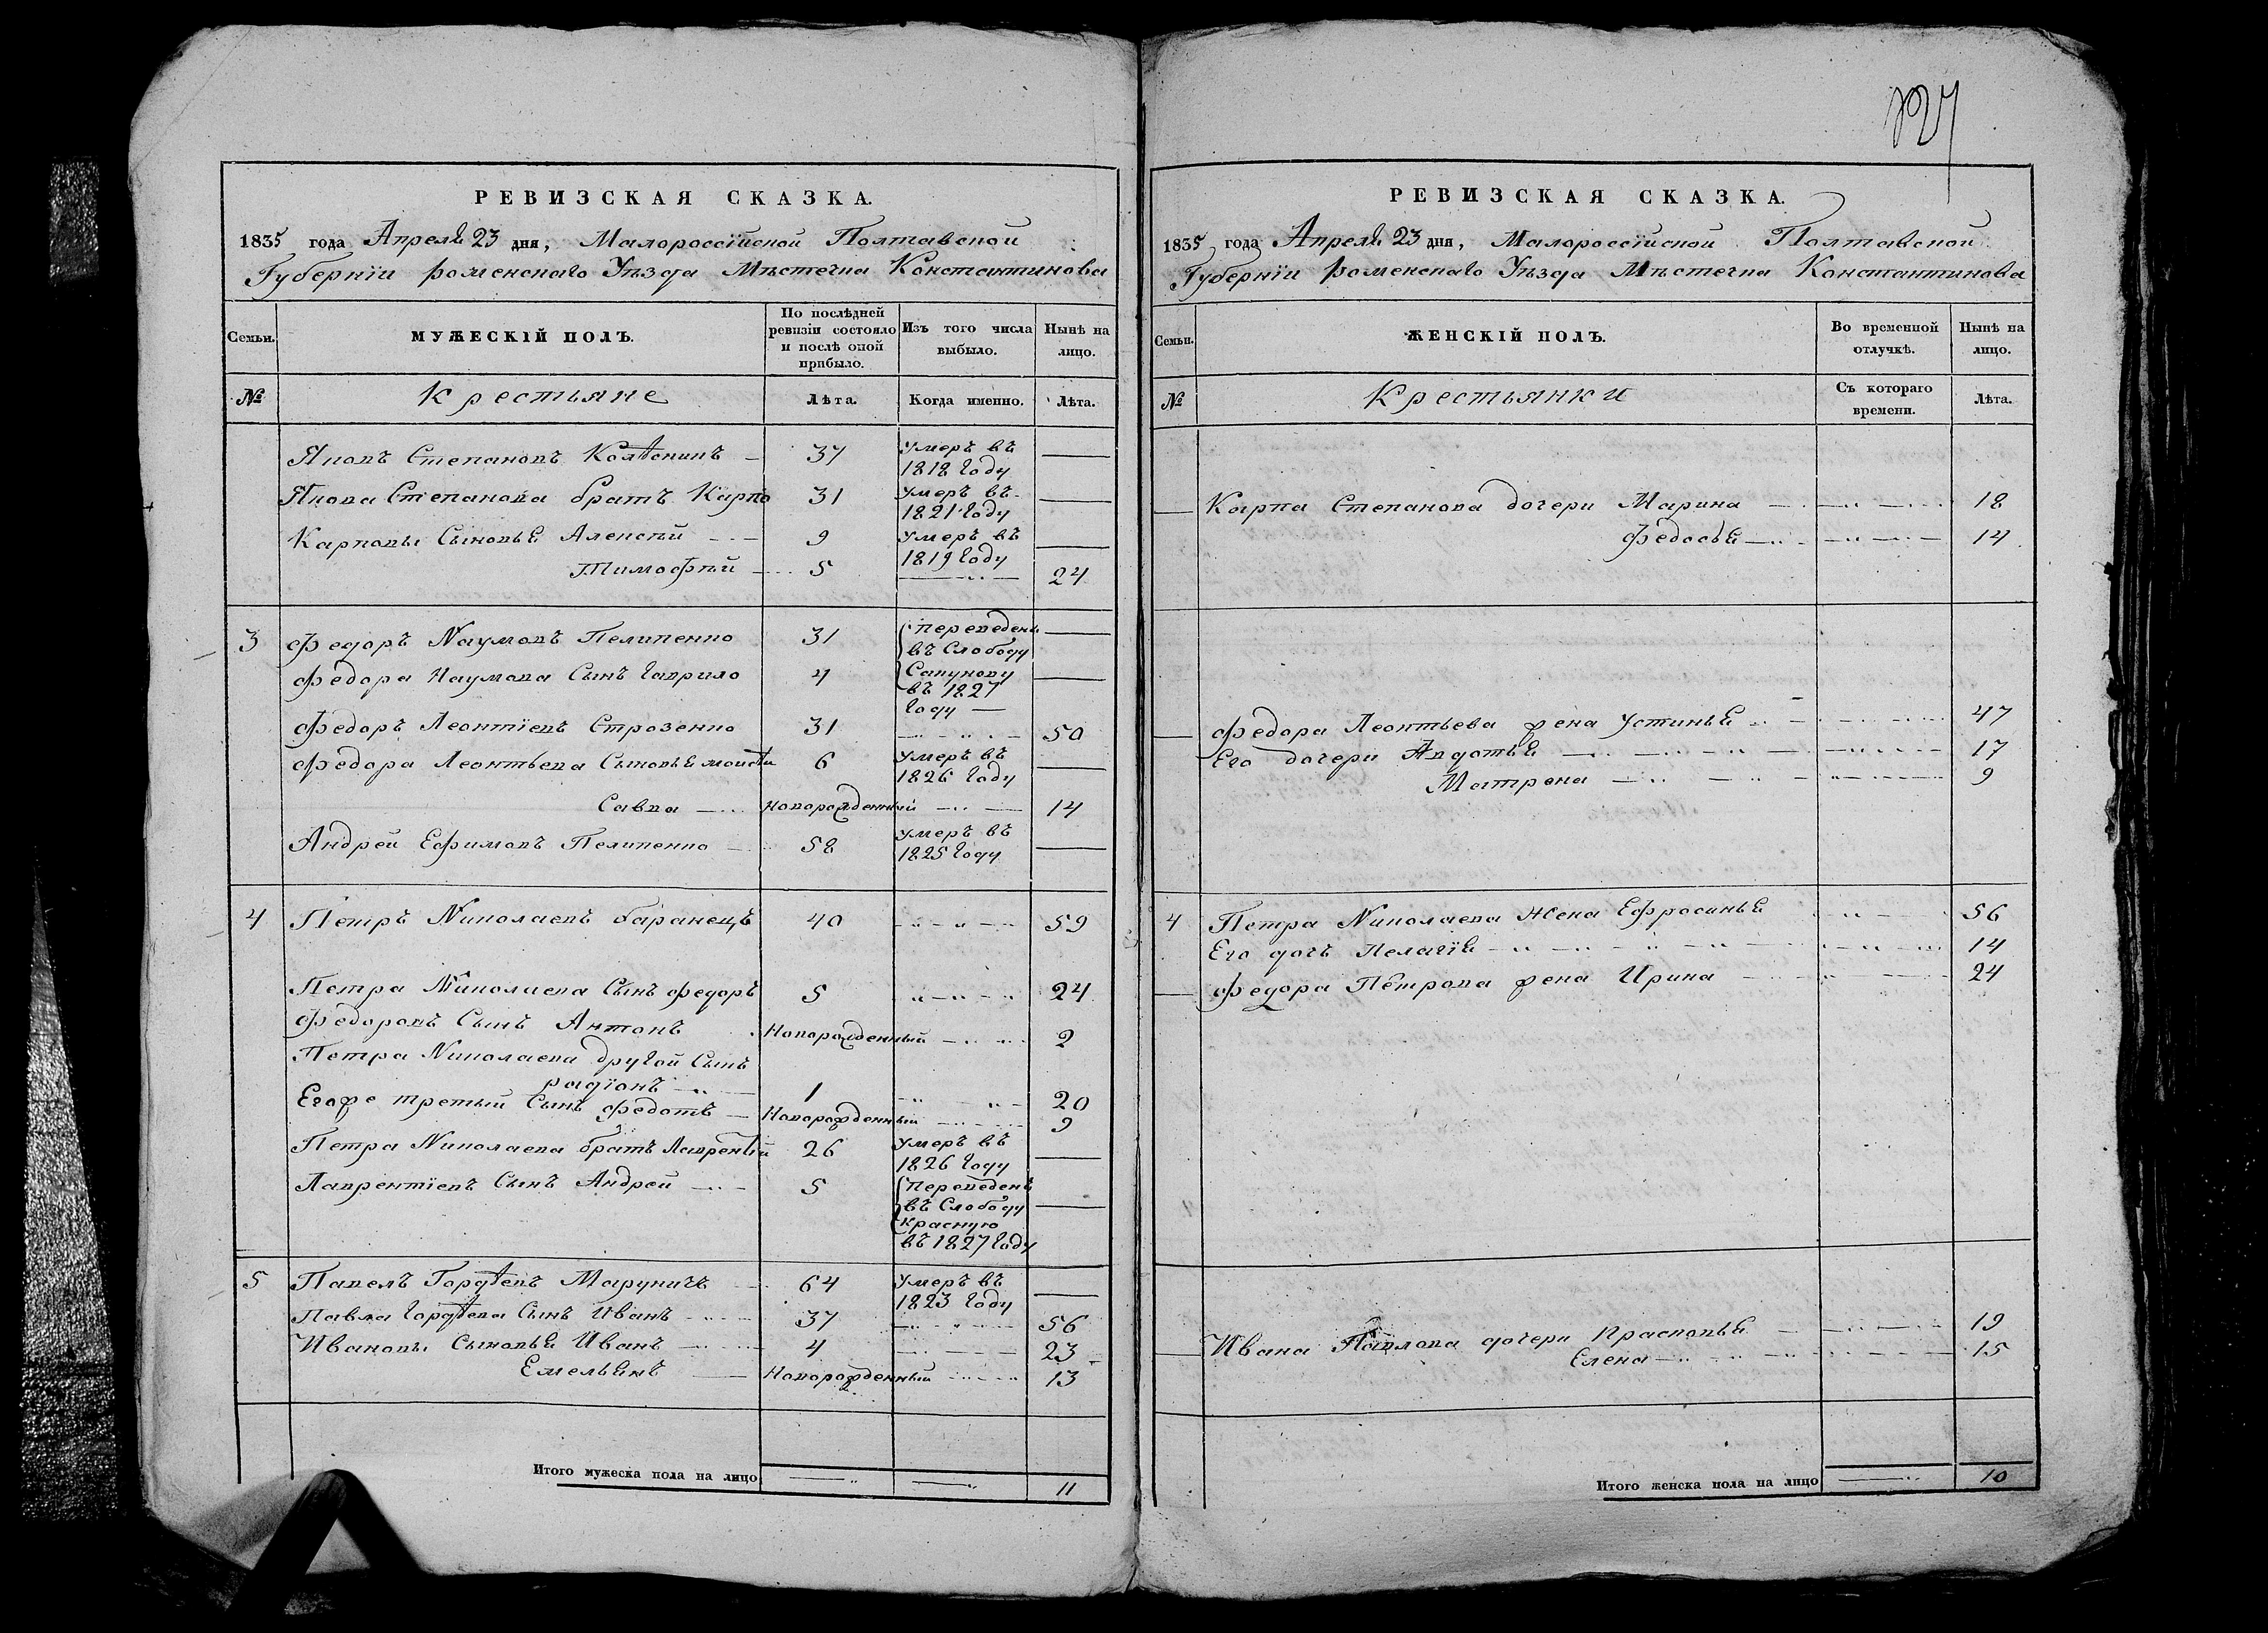 РЕВИЗСКАЯ СКАЗКА.
1835 года Апреля 23 дня, Малороссійской Полтавской
Губерніи Роменскаго Уѣзда Мѣстечка Константинова
Семьи.
МУЖЕСКІЙ ПОЛЪ.
По послѣдней ревизіи состояло и послѣ оной прибыло.
Изъ того числа выбыло.
Нынѣ на лицо.
№ Крестьяне Лѣта. Когда именно. Лѣта.
Яковъ Степановъ 37 умеръ въ 1818 году —
Якова Степанова братъ Карпо 31 умеръ въ 1821 году —
Карповы Сыновья Алексѣй 9 умеръ въ 1819 году —
Тимофѣй 5 — 24
3 Федоръ Наумовъ Пелипенко 31 переведены въ Слободу Сапунову въ 1827 году —
Федора Наумова Сынъ Гаврило 4 —
Федоръ Леонтіевъ Строзенко 31 — 50
Федора Леонтьева Сыновья Моисѣй 6 умеръ въ 1826 году —
Савва — Новорожденный — 14
Андрей Ефимовъ Пелипенко 58 умеръ въ 1825 году —
4 Петръ Николаевъ Баранецъ 40 — 59
Петра Николаева Сынъ Федоръ 5 — 24
Федоровъ Сынъ Антонъ Новорожденный — 2
Петра Николаева другой Сынъ
Радіонъ 1 — 20
Егоже третий Сынъ Федотъ — Новорожденный — 9
Петра Николаева братъ Лаврентій 26 умеръ въ 1826 году —
Лаврентіевъ Сынъ Андрей 5 переведенъ въ Слободу Красную въ 1827 году —
5 Павелъ Гордѣевъ Маруничъ 64 умеръ въ 1823 году —
Павла Гордѣева Сынъ Иванъ 37 — 56
Ивановы Сыновья Иванъ 4 — 23
Емельянъ — Новорожденный — 13
Итого мужеска пола на лицо — — 11
РЕВИЗСКАЯ СКАЗКА.
1835 года Апреля 23 дня, Малороссійской Полтавской
Губерніи Роменскаго Уѣзда Мѣстечка Константинова
Семьи.
ЖЕНСКІЙ ПОЛЪ.
Во временной отлучкѣ.
Нынѣ на лицо.
№ Крестьянки Съ котораго времени. Лѣта.
Карпа Степанова дочери Марина — 18
Федосья — 14
Федора Леонтьева жена Устинья — 47
Его дочери Авдотья — 17
Матрена — 9
4 Петра Николаева Жена Ефросинья — 56
Его дочь Пелагія — 14
Федора Петрова жена Ирина — 24
Ивана Павлова дочери Прасковья — 19
Елена — 15
Итого женска пола на лицо — 10